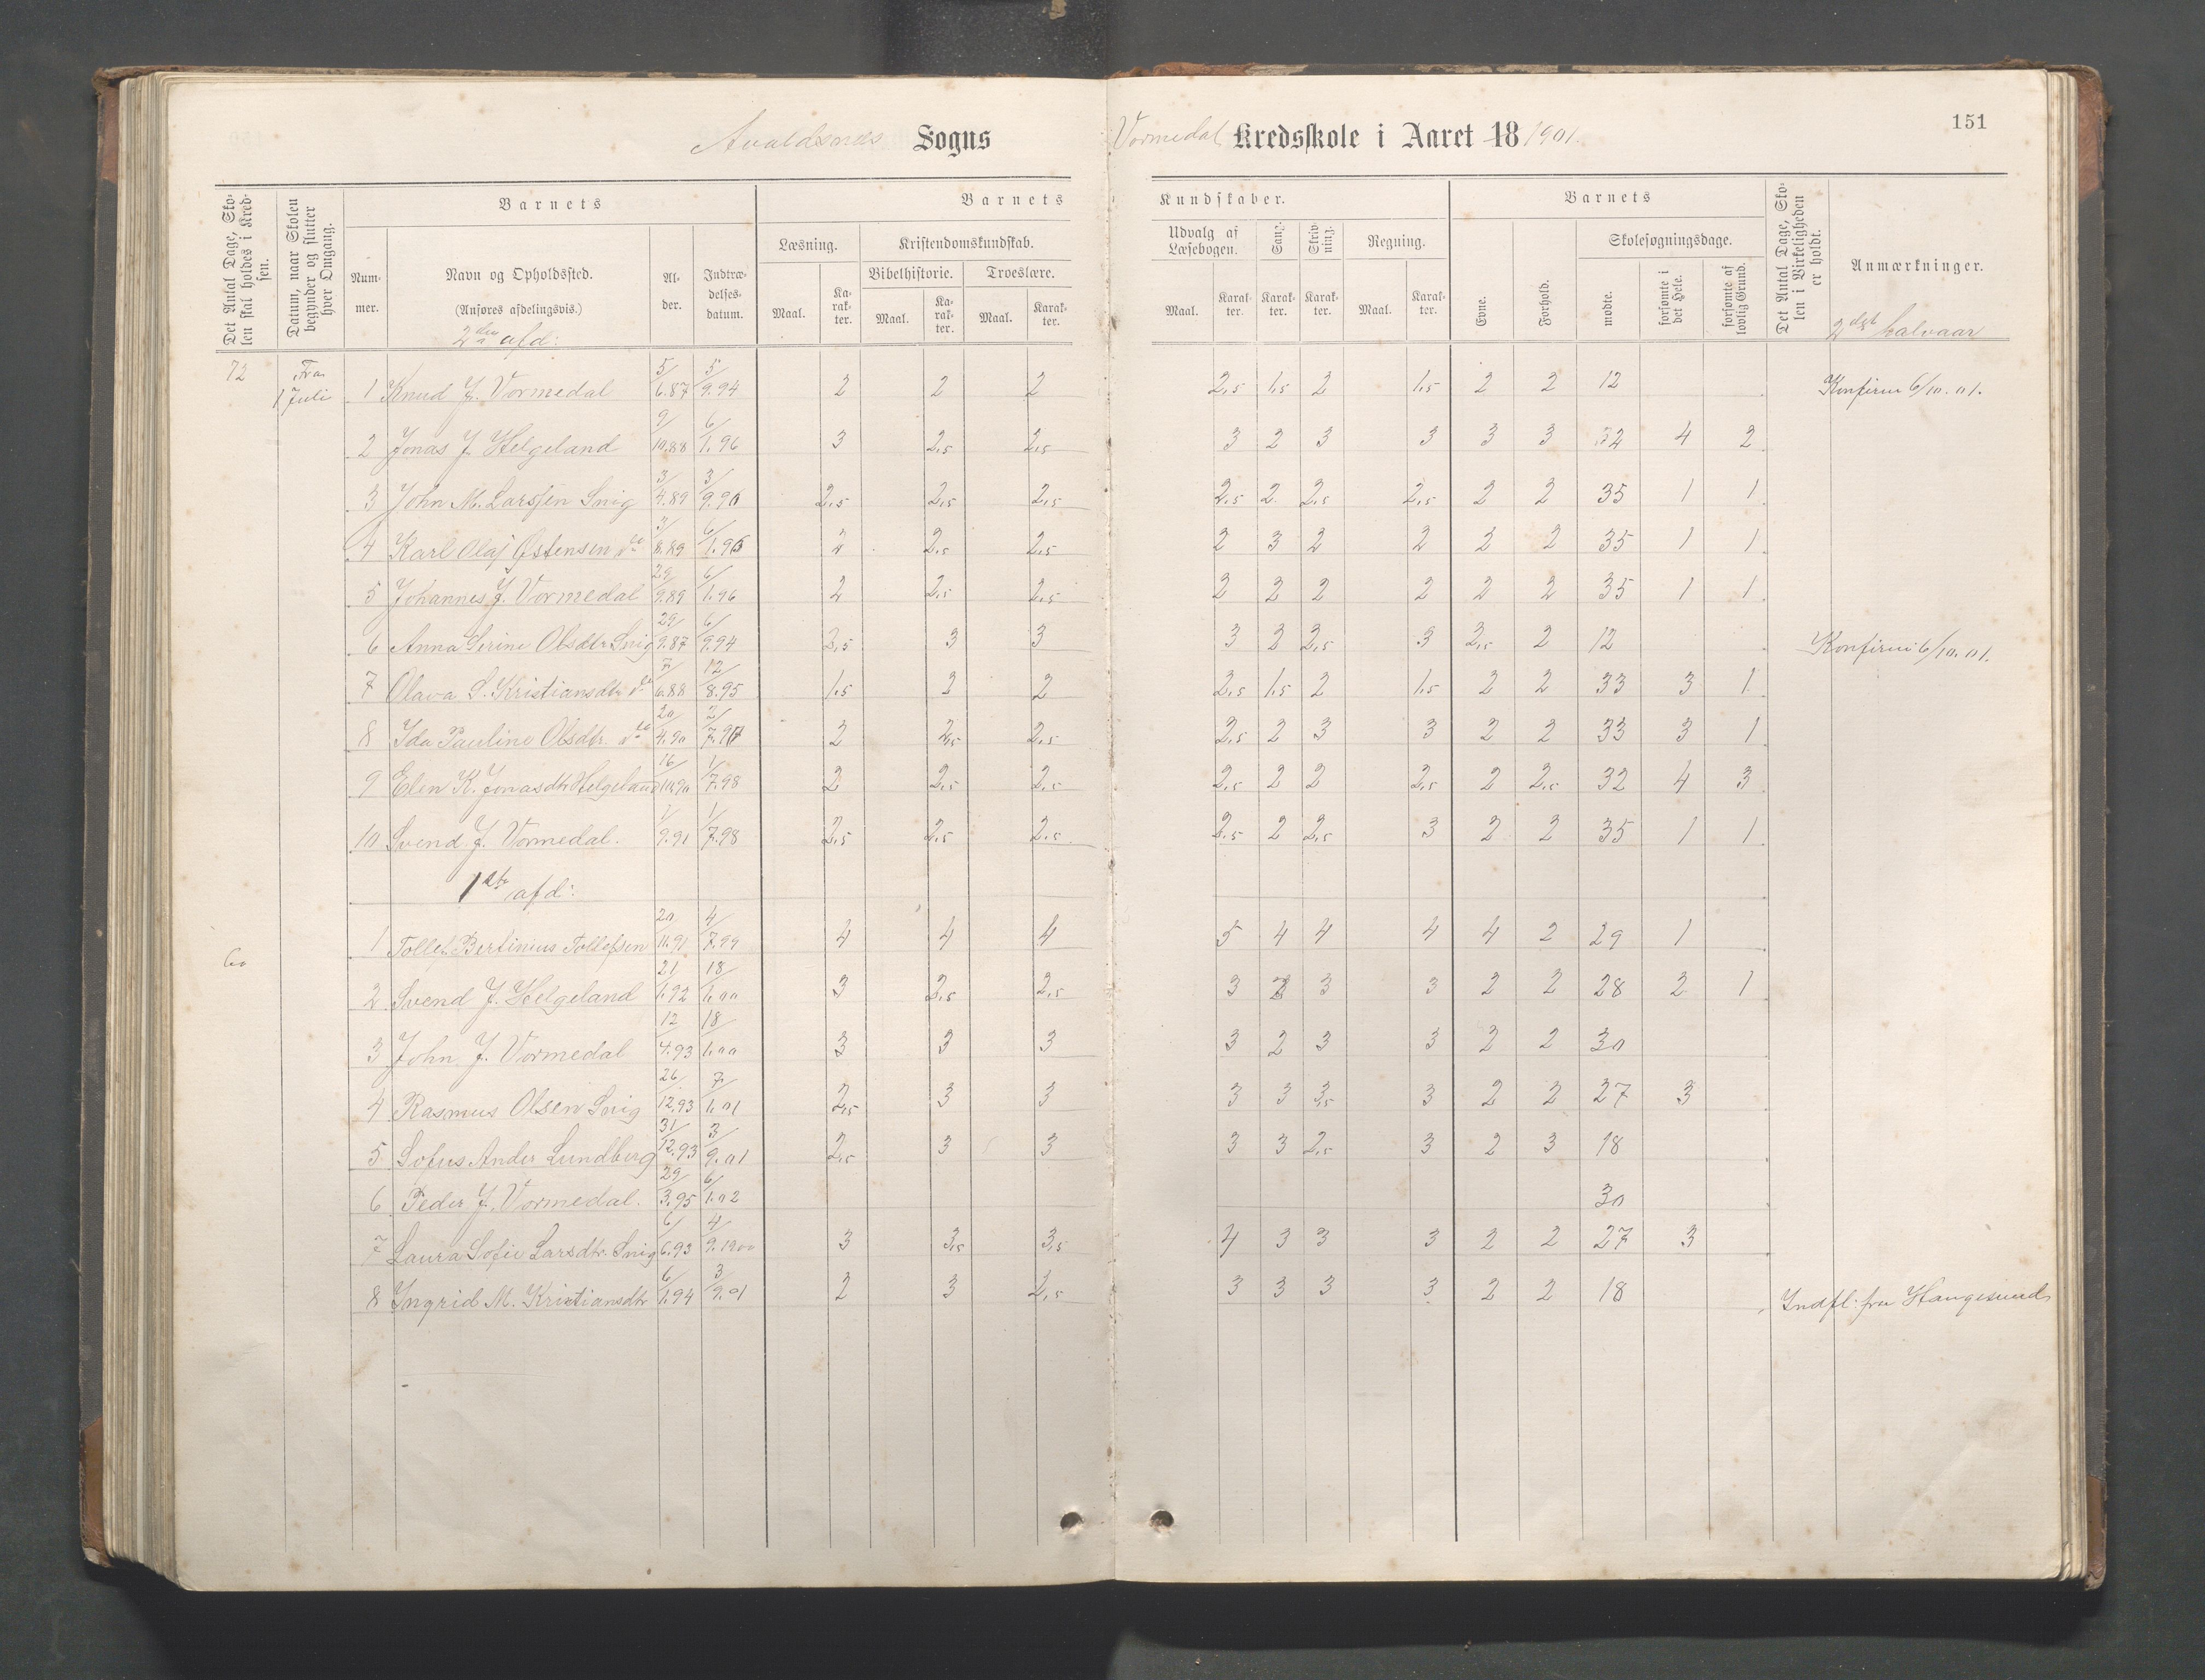 151
Avaldsnes Sogns Vormedal Kredsskole i Aaret 18 1901.
Det Antal Dage, Skolen skal holdes i Kredsen.
Datum, naar Skolen begynder og slutter hver Omgang.
Barnets
Nummer.
Navn og Opholdssted.
(Anføres afdelingsvis.)
2den afd:
Alder.
Indtrædelsesdatum.
Barnets Kundskaber.
Læsning.
Maal. Karakter.
Kristendomskundskab.
Bibelhistorie.
Maal. Karakter.
Troeslære.
Maal. Karakter.
Udvalg af Læsebogen.
Maal. Karakter.
Sang.
Karakter.
Skrivning.
Karakter.
Regning.
Maal. Karakter.
Barnets
Evne.
Forhold.
Skolesøgningsdage.
mødte.
forsømte i det Hele.
forsømte af lovlig Grund.
Det Antal Dage, Skolen i Virkeligheden er holdt.
Anmærkninger.
2det halvaar
72 Fra 1 Juli
1 Knud J. Vormedal 5/6.87 5/9.94 2 2 2 2,5 1,5 2 1,5 2 2 12 Konfirm 6/10.01.
2 Jonas J. Helgeland 9/10.88 6/1.96 3 2,5 2,5 3 2 3 3 3 3 32 4 2
3 John M. Larssen Snig 3/4.89 3/9.96 2,5 2,5 2,5 2,5 2 2,5 2,5 2 2 35 1 1
4 Karl Olaf Østensen do 3/8.89 6/1.96 2 2,5 2,5 2 3 2 2 2 2 35 1 1
5 Johannes J. Vormedal 29/9.89 6/1.96 2 2,5 2,5 2 2 2 2 2 2 35 1 1
6 Anna Serine Olsdtr Snig 29/9.87 6/9.94 2,5 3 3 3 2 2,5 3 2,5 2 12 Konfirm 6/10.01.
7 Olava S. Kristiansdtr do 7/6.88 12/8.95 1,5 2 2 2,5 1,5 2 1,5 2 2 33 3 1
8 Ida Pauline Olsdtr. do 20/4.90 2/7.97 2 2,5 2,5 2,5 2 3 3 2 2 33 3 1
9 Elen K. Jonasdtr Helgeland 16/10.90 1/7.98 2 2,5 2,5 2,5 2 2 2,5 2 2,5 32 4 3
10 Svend J. Vormedal. 1/9.91 1/7.98 2,5 2,5 2,5 2,5 2 2,5 3 2 2 35 1 1
1ste afd:
60
1 Tollef Bertinius Tollefsen 20/11.91 4/7.99 4 4 4 5 4 4 4 4 2 29 1
2 Svend J. Helgeland 21/1.92 18/1.00 3 2,5 2,5 3 2 3 3 2 2 28 2 1
3 John J. Vormedal 12/4.93 18/1.00 3 3 3 3 2 3 3 2 2 30
4 Rasmus Olsen Snig 26/12.93 7/1.01 2,5 3 3 3 3 3,5 3 2 2 27 3
5 Sofus Ander Lundberg 31/12.93 3/9.01 2,5 3 3 3 3 2,5 3 2 3 18
6 Peder J. Vormedal. 29/3.95 6/1.02 30
7 Laura Sofie Larsdtr. Snig 6/6.93 4/9.1900 3 3,5 3,5 4 3 3 3 2 2 27 3
8 Ingrid M. Kristiansdtr 6/1.94 3/9.01 2 3 2,5 3 3 3 3 2 2 18 Indfl: fra Haugesund